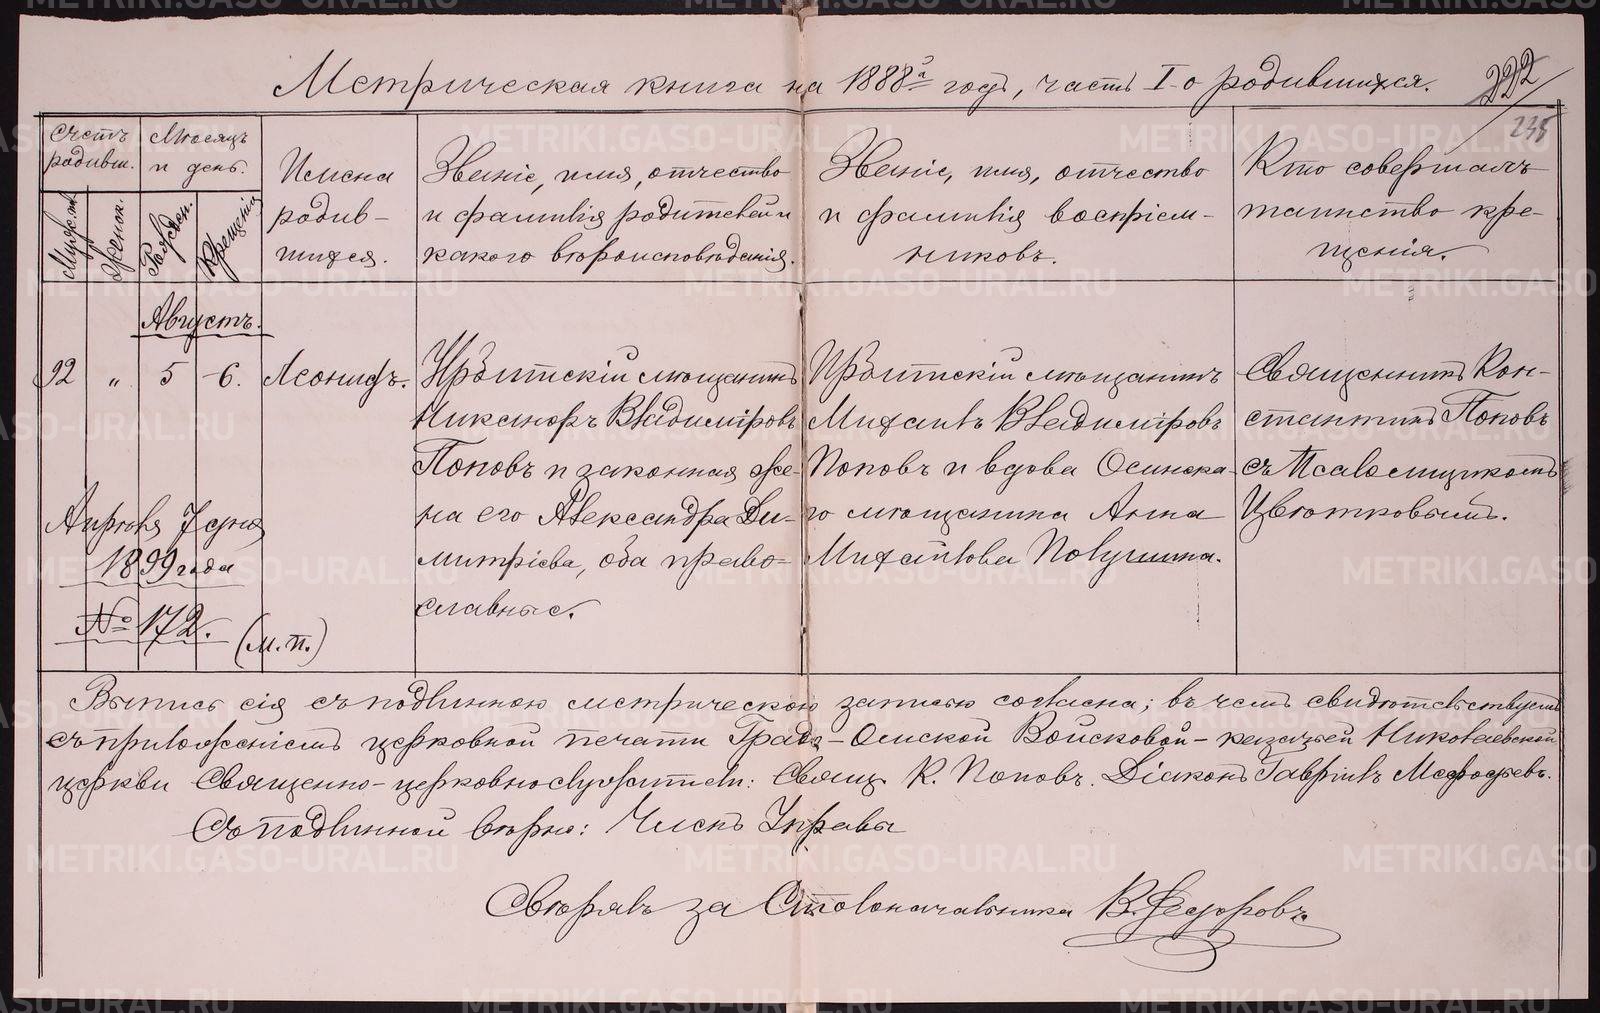 Метрическая книга на 1888й годъ, часть I-о родившихся.
222
235
Счетъ родивш.
Мужеск.
Женск.
Мѣсяцъ и день.
Рожден.
Крещенія
Имена
родив-
шихся.
Званіе, имя, отчество
и фамилія родителей и
какого вѣроисповѣданія.
Званіе, имя, отчество
и фамилія воспріем-
никовъ.
Кто совершалъ
таинство кре-
щенія.
Августъ.
92 " 5 6. Леонидъ.
Ирбитскій мѣщанинъ
Никаноръ Владиміровъ
Поповъ и законная же-
на его Александра Ди-
митріева, оба право-
славные.
Ирбитскій мѣщанинъ
Михаилъ Владиміровъ
Поповъ и вдова Осинска-
го мѣщанина Анна
Михайлова Полушина.
Священникъ Кон-
стантинъ Поповъ
съ Псаломщикомъ
Цвѣтковымъ.
Апрѣля 7 дня
1899 года
№ 172.
(М.П.)
Выпись сія съ подлинною метрическою записью согласна; въ чемъ свидѣтельствуемъ
съ приложеніемъ церковной печати Градо-Омской Войсковой-казачьей Николаевской
церкви Священно-церковнослужители: Свящ. К. Поповъ. Діаконъ Гавріилъ Мефодьевъ.
Съ подлинной вѣрно: Членъ Управы
Свѣрялъ за Столоначальника В. Федоровъ
METRIKI.GASO-URAL.RU